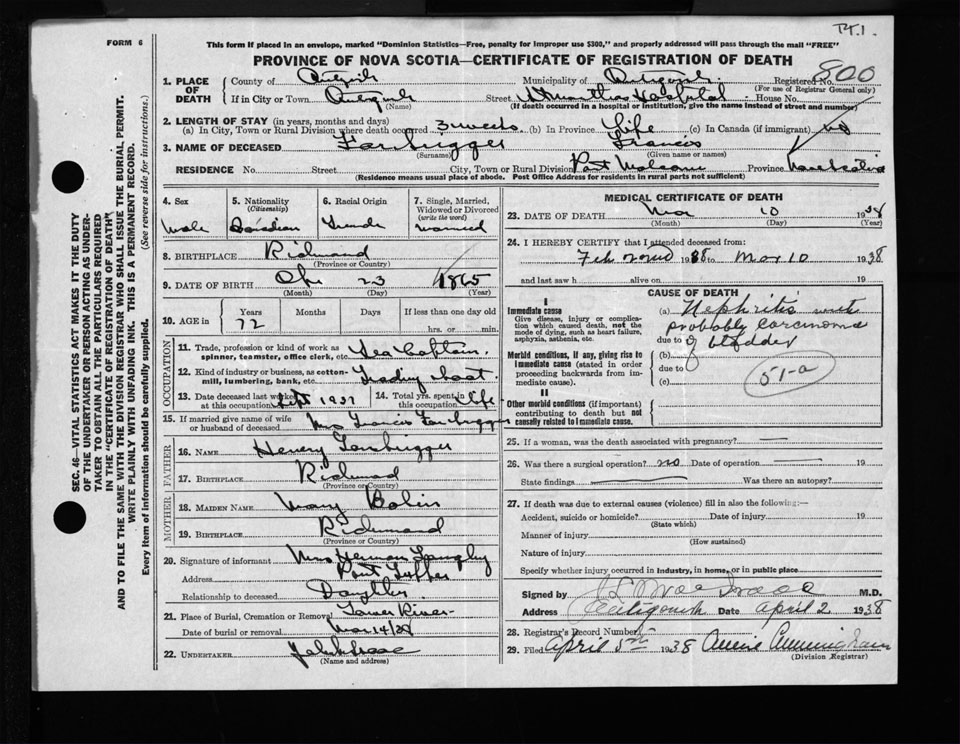 Pt. 1.
FORM 6
This form if placed in an envelope, marked "Dominion Statistics—Free, penalty for improper use $300," and properly addressed will pass through the mail "FREE"
PROVINCE OF NOVA SCOTIA—CERTIFICATE OF REGISTRATION OF DEATH
800
1. PLACE OF DEATH
County of Antigonish Municipality of Antigonish Registered No.
(For use of Registrar General only)
If in City or Town Antigonish Street St Marthas Hospital House No.
(Name) (If death occurred in a hospital or institution, give the name instead of street and number)
2. LENGTH OF STAY (in years, months and days)
(a) In City, Town or Rural Division where death occurred 3 weeks (b) In Province Life (c) In Canada (if immigrant) no
3. NAME OF DECEASED Farbrigger Francis
(Surname) (Given name or names)
RESIDENCE No. Street City, Town or Rural Division Port Malcolm Province Nova Scotia
(Residence means usual place of abode. Post Office Address for residents in rural parts not sufficient)
4. Sex
5. Nationality
(Citizenship)
6. Racial Origin
7. Single, Married, Widowed or Divorced
(write the word)
Male Canadian French married
8. BIRTHPLACE Richmond
(Province or Country)
9. DATE OF BIRTH 23 1865
(Month) (Day) (Year)
10. AGE in
Years Months Days If less than one day
72 hrs. or min.
OCCUPATION
11. Trade, profession or kind of work as spinner, teamster, office clerk, etc. Sea Captain.
12. Kind of industry or business, as cotton-mill, lumbering, bank, etc. Trading
13. Date deceased last worked at this occupation Sept 1937 14. Total yrs. spent in this occupation life
15. If married give name of wife or husband of deceased Mrs Francis Farbrigger
FATHER
16. NAME Henry Farbrigger
17. BIRTHPLACE Richmond
(Province or Country)
MOTHER
18. MAIDEN NAME Mary
19. BIRTHPLACE Richmond
(Province or Country)
20. Signature of informant Mrs Herman Langley
Address Point Tupper
Relationship to deceased Daughter
21. Place of Burial, Cremation or Removal Lower River
Date of burial or removal Mar 14/38
22. UNDERTAKER
(Name and address)
MEDICAL CERTIFICATE OF DEATH
23. DATE OF DEATH Mar 10 1938
(Month) (Day) (Year)
24. I HEREBY CERTIFY that I attended deceased from:
Feb 22nd 1938 to Mar 10 1938
and last saw h alive on 19
CAUSE OF DEATH
I
Immediate cause
Give disease, injury or complication which caused death, not the mode of dying, such as heart failure, asphyxia, asthenia, etc.
(a) Nephritis with
probably carcinoma
due to of bladder
Morbid conditions, if any, giving rise to immediate cause (stated in order proceeding backwards from immediate cause).
(b)
due to
(c)
51-a
II
Other morbid conditions (if important) contributing to death but not causally related to immediate cause.
25. If a woman, was the death associated with pregnancy?
26. Was there a surgical operation? no Date of operation 19
State findings Was there an autopsy?
27. If death was due to external causes (violence) fill in also the following:—
Accident, suicide or homicide? Date of injury 19
(State which)
Manner of injury
(How sustained)
Nature of injury
Specify whether injury occurred in industry, in home, or in public place
Signed by M.D.
Address Antigonish Date April 2 1938
28. Registrar's Record Number
29. Filed April 5th 1938 Annie Cunningham
(Division Registrar)
SEC. 46—VITAL STATISTICS ACT MAKES IT THE DUTY
OF THE UNDERTAKER OR PERSON ACTING AS UNDER-
TAKER TO OBTAIN ALL THE PARTICULARS REQUIRED
IN THE "CERTIFICATE OF REGISTRATION OF DEATH"
AND TO FILE THE SAME WITH THE DIVISION REGISTRAR WHO SHALL ISSUE THE BURIAL PERMIT.
WRITE PLAINLY WITH UNFADING INK. THIS IS A PERMANENT RECORD.
Every item of information should be carefully supplied. (See reverse side for instructions.)